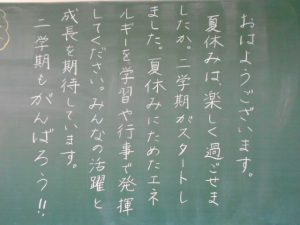 おはようございます。
夏休みは楽しく過ごせま
したか。二学期がスタートし
ました。夏休みにためたエネ
ルギーを学習や行事で発揮
してください。みんなの活躍と
成長を期待しています。
二学期もがんばろう!!